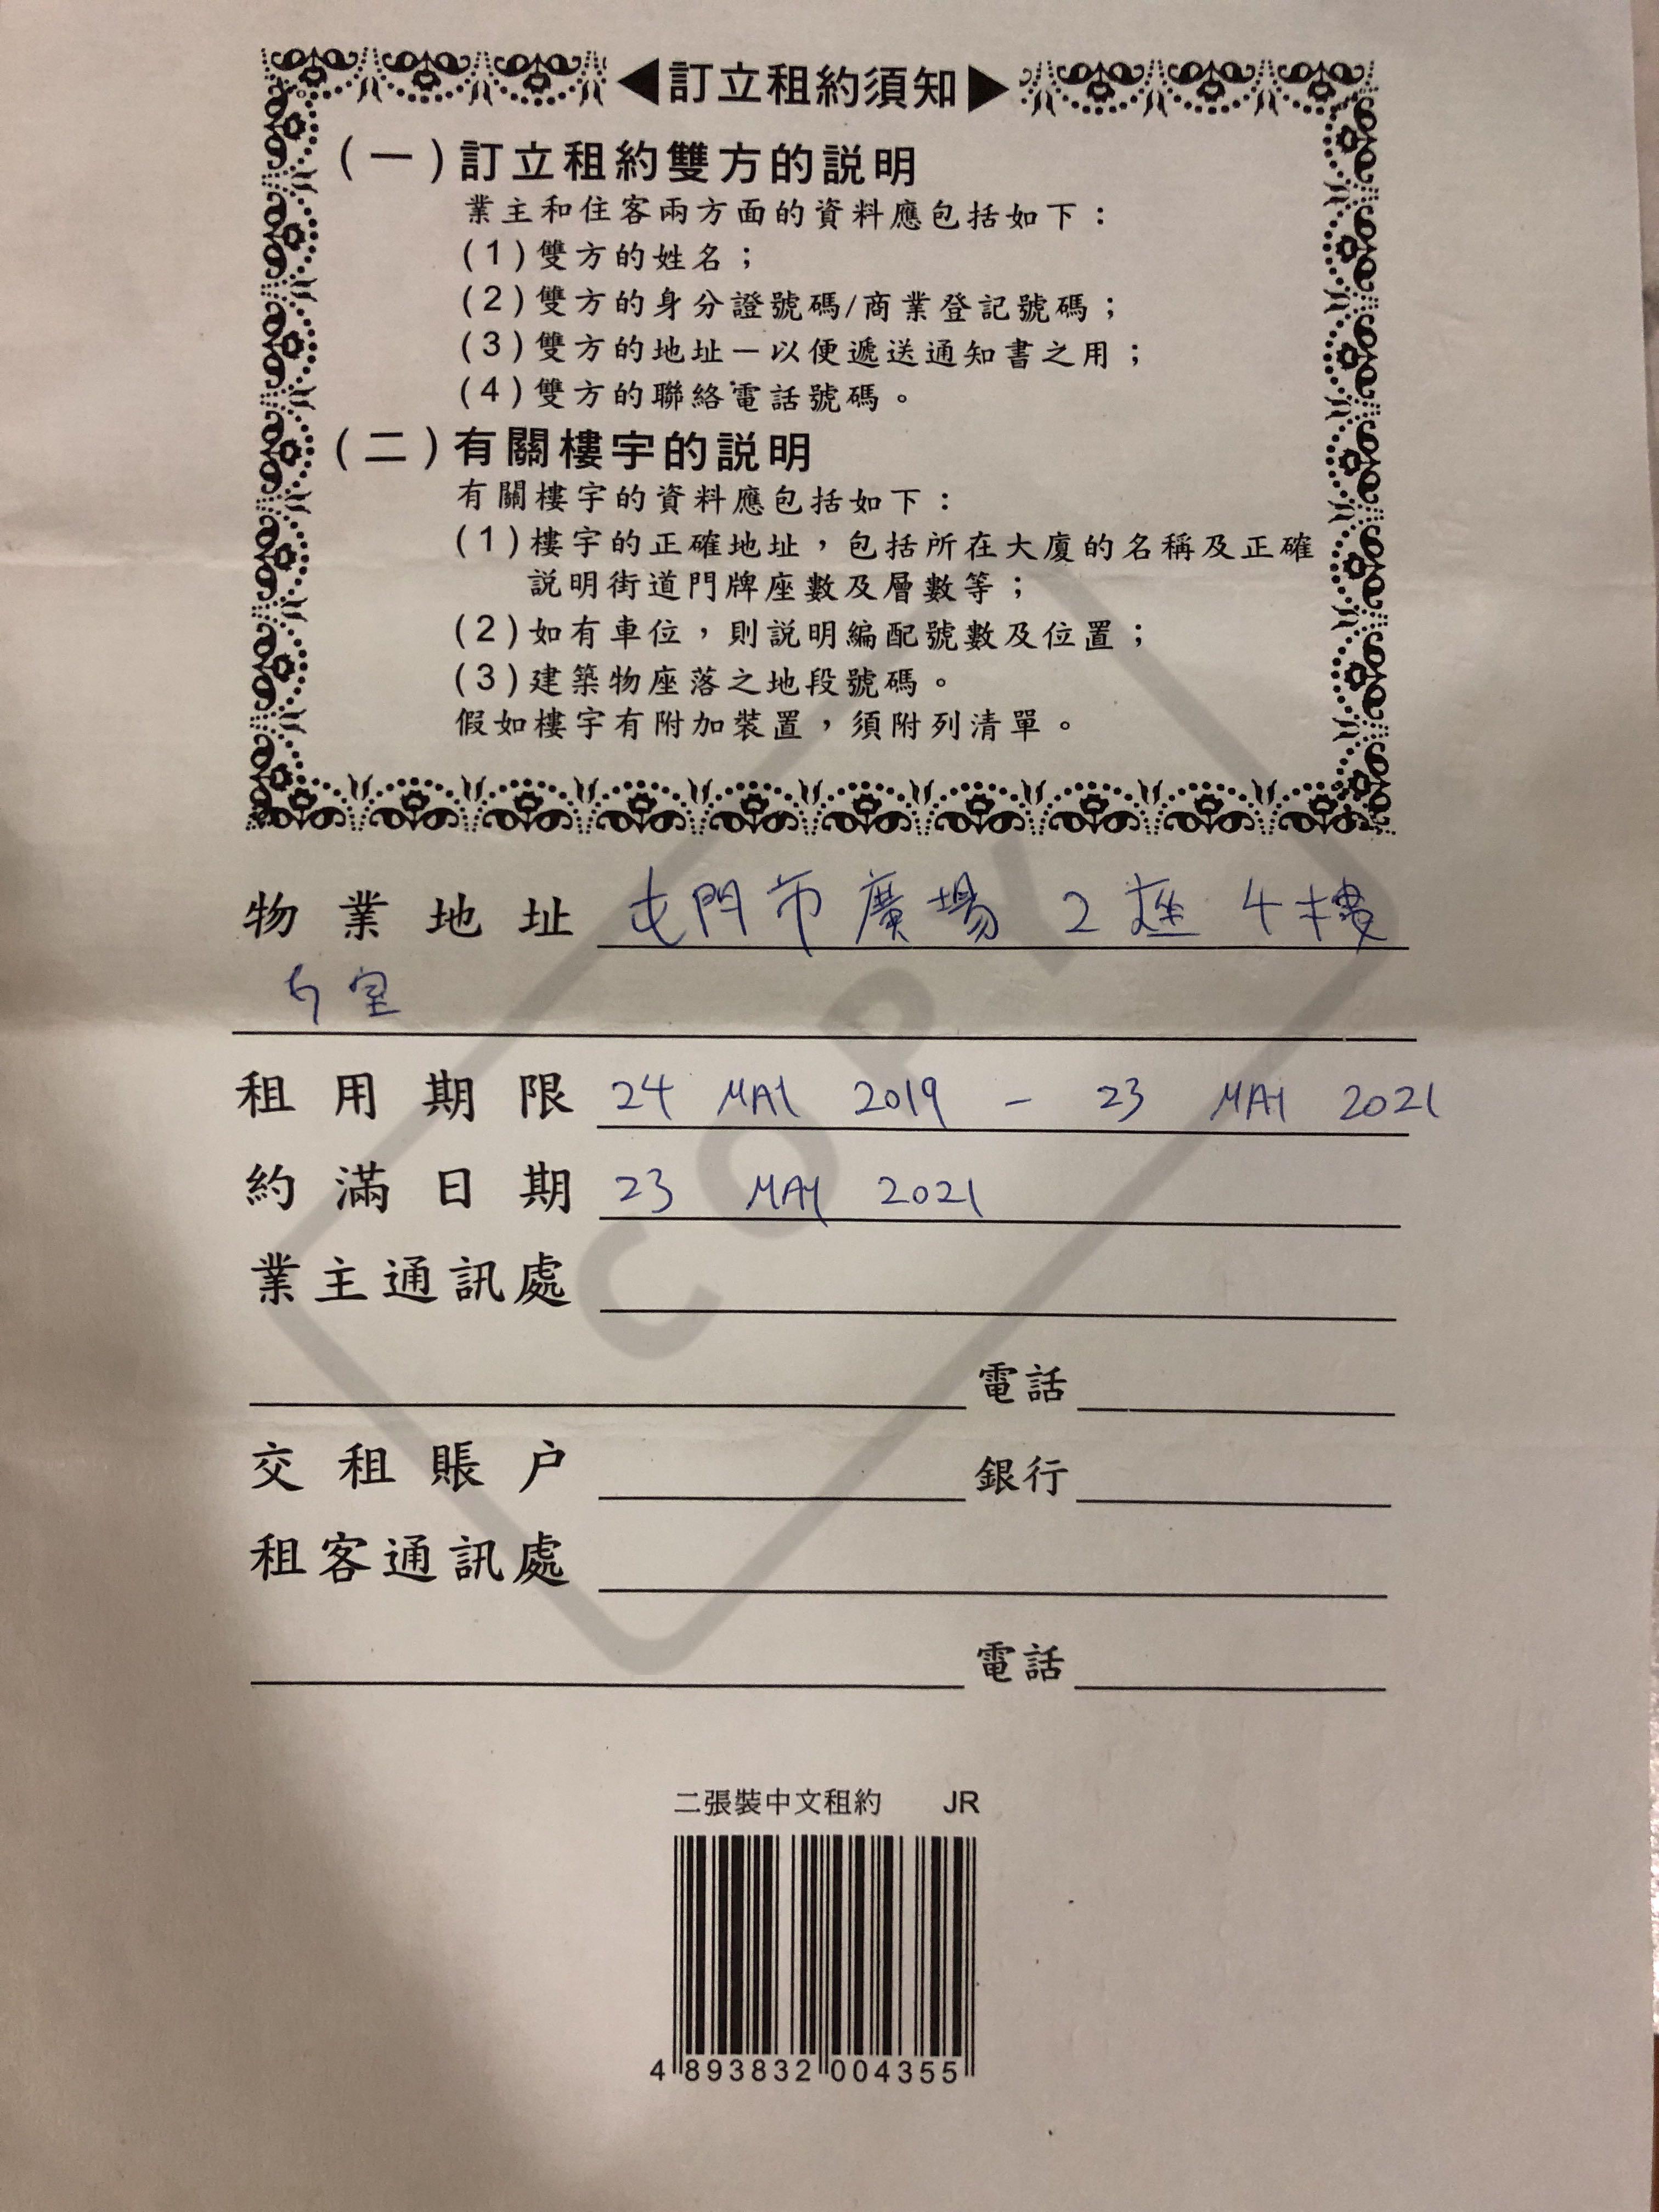 ◀訂立租約須知▶
(一)訂立租約雙方的説明
業主和住客兩方面的資料應包括如下：
(1)雙方的姓名；
(2)雙方的身分證號碼/商業登記號碼；
(3)雙方的地址－以便遞送通知書之用；
(4)雙方的聯絡電話號碼。
(二)有關樓宇的説明
有關樓宇的資料應包括如下：
(1)樓宇的正確地址，包括所在大廈的名稱及正確
説明街道門牌座數及層數等；
(2)如有車位，則説明編配號數及位置；
(3)建築物座落之地段號碼。
假如樓宇有附加裝置，須附列清單。
物業地址 屯門市廣場 2座 4樓
室
租用期限 24 MAY 2019 - 23 MAY 2021
約滿日期 23 MAY 2021
業主通訊處
電話
交租賬户 銀行
租客通訊處
電話
COPY
二張裝中文租約 JR
4 893832 004355